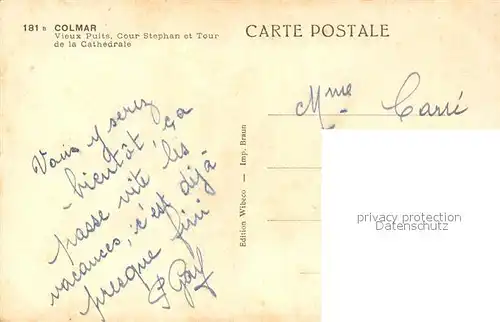 181 B COLMAR
Vieux Puits, Cour Stephan et Tour
de la Cathédrale
CARTE POSTALE
Vous y serez
bientôt, ça
passe vite les
vacances, c'est déjà
presque fini
Mme Carré
Edition Wibeco — Imp. Braun
privacy protection
watermark